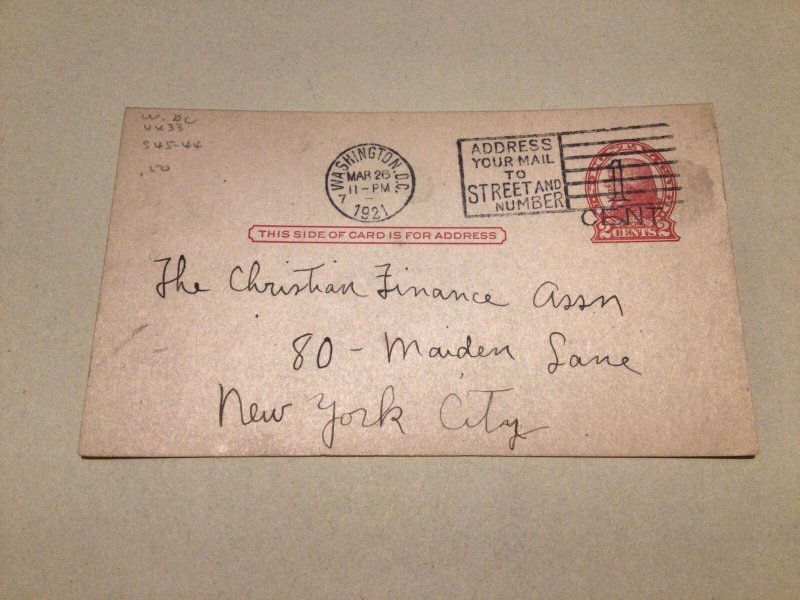 W. DC
UX33
S45-44
.50
WASHINGTON, D.C.
MAR 26
11-PM
7
1921
ADDRESS
YOUR MAIL
TO
STREET AND
NUMBER
1
CENT
2 CENTS 2
THIS SIDE OF CARD IS FOR ADDRESS
The Christian Finance Assn
80 - Maiden Lane
New York City